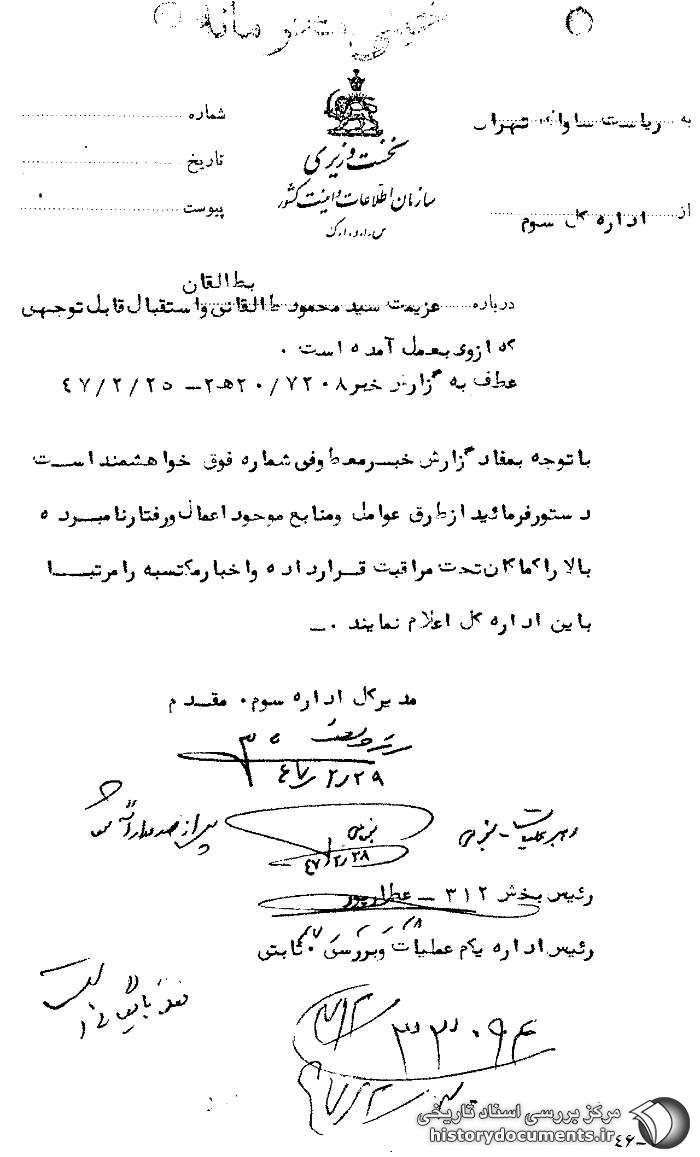 خیلی محرمانه
نخست وزیری
سازمان اطلاعات و امنیت کشور
س.ا.و.ا.ک
به ریاست ساواک تهران
از اداره کل سوم
شماره
تاریخ
پیوست
بطالقان
درباره عزیمت سید محمود طالقانی واستقبال قابل توجهی
که ازوی بعمل آمده است .
عطف به گزارش خبر ۲۰/۷۲۰۸ه‍۲ – ۴۷/۲/۲۵
با توجه بمفاد گزارش خبر معطوفی شماره فوق خواهشمند است
دستور فرمائید از طرق عوامل ومنابع موجود اعمال ورفتار نامبرده
بالا را کماکان تحت مراقبت قرار داده واخبار مکتسبه را مرتبا
باین اداره کل اعلام نمایند .–
مدیر کل اداره سوم . مقدم
۴۷/۲/۲۹
رهبر عملیات –
پس از صدور
۴۷/۲/۲۸
رئیس بخش ۳۱۲ – عطارپور
رئیس اداره یکم عملیات وبررسی . ثابتی
مرکز بررسی اسناد تاریخی
historydocuments.ir
–۴۶